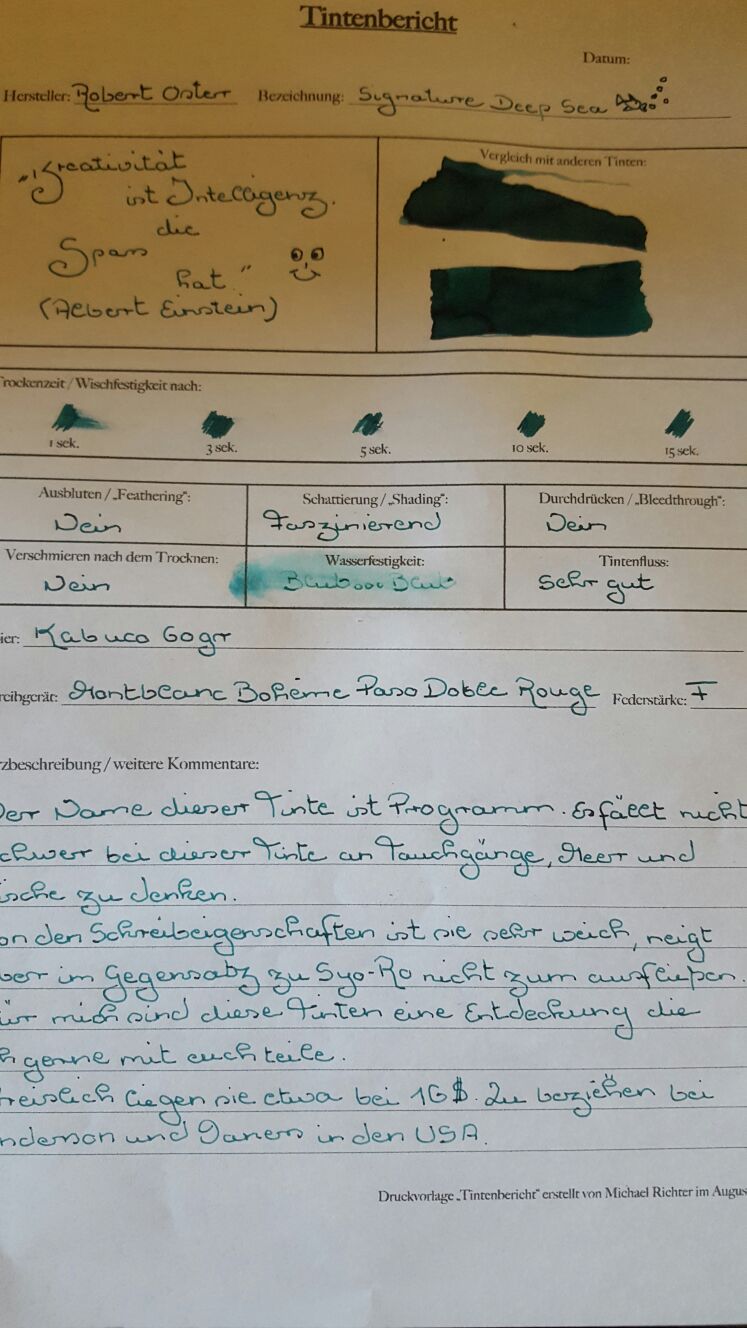 Tintenbericht
Datum:
Hersteller: Robert Oster Bezeichnung: Signature Deep Sea
„Kreativität
ist Intelligenz.
die
Spass
hat."
(Albert Einstein)
Vergleich mit anderen Tinten:
rockenzeit / Wischfestigkeit nach:
1 sek. 3 sek. 5 sek. 10 sek. 15 sek.
Ausbluten / „Feathering": Schattierung / „Shading": Durchdrücken / „Bleedthrough":
Nein Faszinierend Nein
Verschmieren nach dem Trocknen: Wasserfestigkeit: Tintenfluss:
Nein Blubooo Blub Sehr gut
ier: Kabuco Gogr
reibgerät: Montblanc Bohème Paso Doble Rouge Federstärke: F
zbeschreibung / weitere Kommentare:
Der Name dieser Tinte ist Programm. Es fällt nicht
chwer bei dieser Tinte an Tauchgänge, Meer und
ische zu denken.
on den Schreibeigenschaften ist sie sehr weich, neigt
ber im Gegensatz zu Syo-Ro nicht zum ausfließen.
ür mich sind diese Tinten eine Entdeckung die
h gerne mit euch teile.
reislich liegen sie etwa bei 16$. Zu beziehen bei
nderson und Daners in den USA.
Druckvorlage „Tintenbericht" erstellt von Michael Richter im Augus